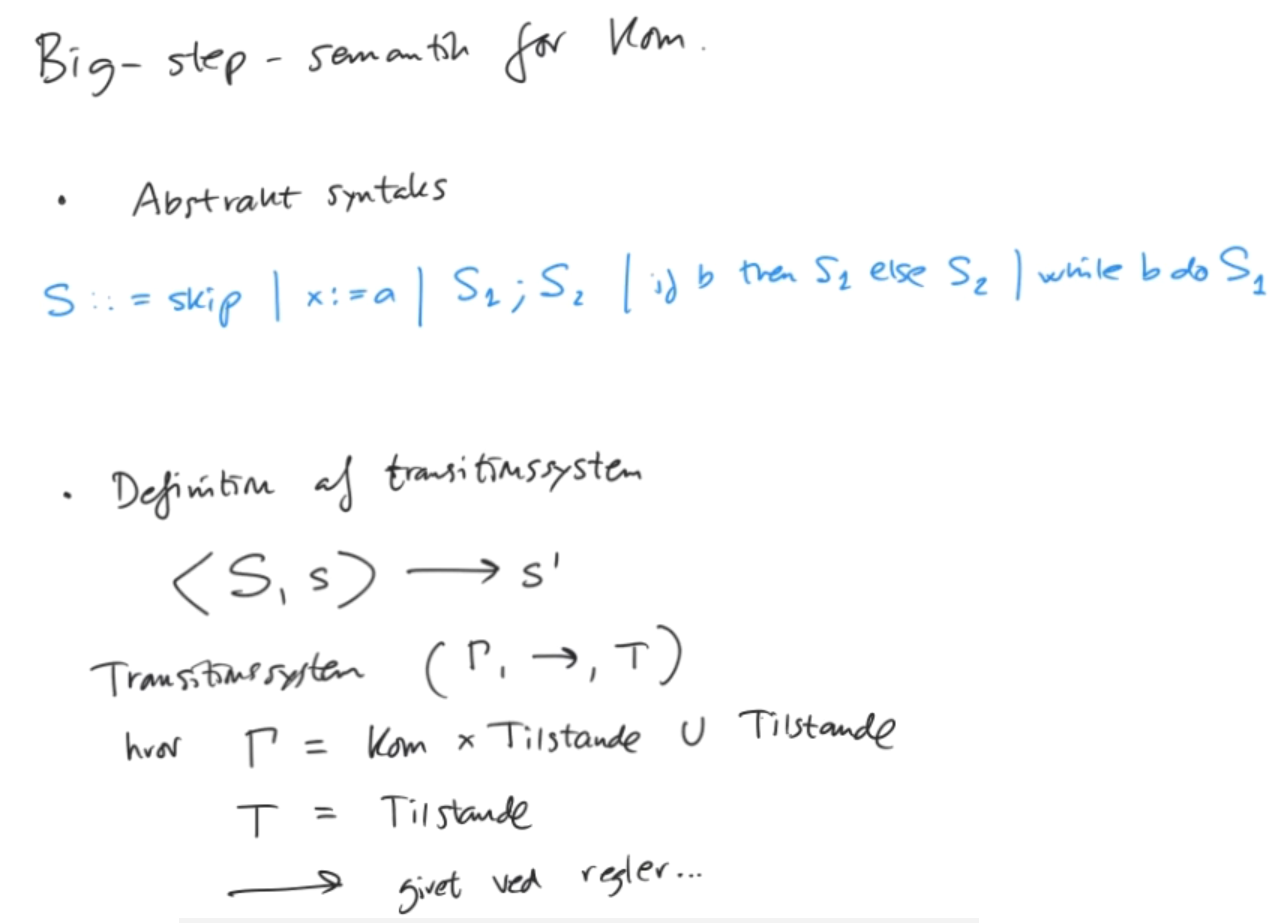 Big-step-semantik for Kom.
• Abstrakt syntaks
S ::= skip | x:=a | S₁; S₂ | if b then S₁ else S₂ | while b do S₁
• Definition af transitionssystem
⟨S, s⟩ ⟶ s'
Transitionssystem (Γ, →, T)
hvor Γ = Kom × Tilstande ∪ Tilstande
T = Tilstande
⟶ givet ved regler...